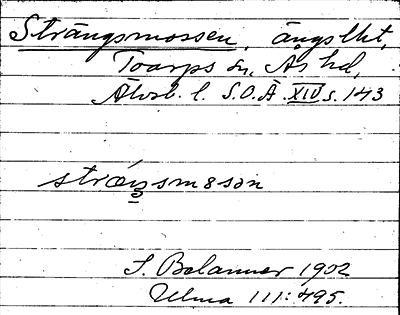 Strängsmossen, ängslht,
Toarps sn, Ås hd,
Älvsb. l. S.O.Ä. XIV s. 143
stræŋsmɵsən
1902
Ulma 111:495.